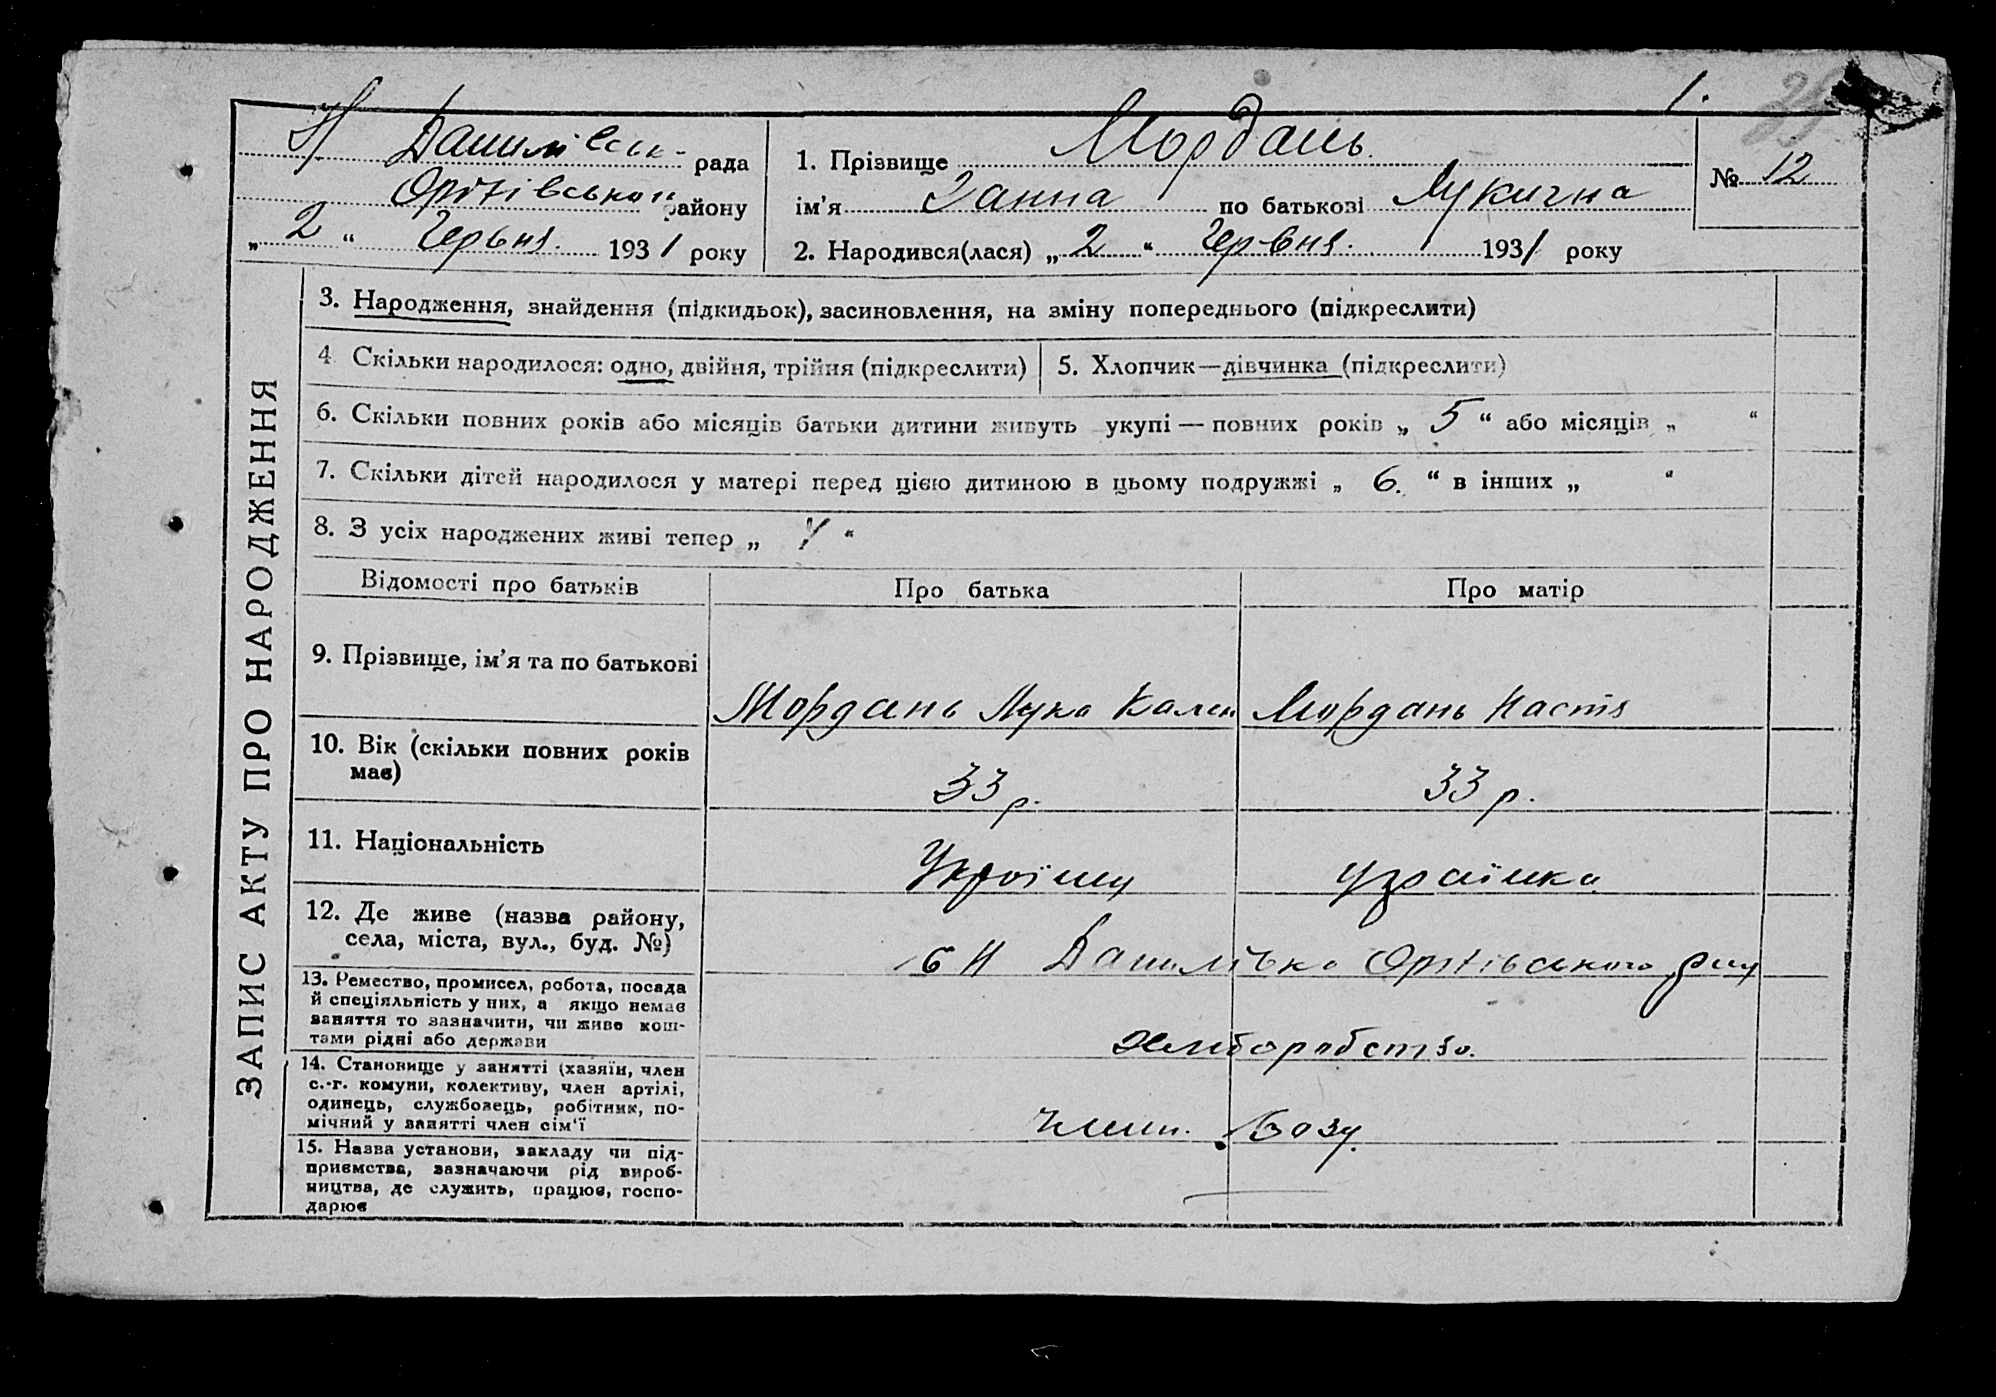 1.
Н Данилівськ- рада
Оріхівського району
„ 2 “ Червня. 1931 року
1. Прізвище Мордань
ім’я Ганна по батькові Лукична
2. Народився(лася) „ 2 “ Червня. 1931 року
№ 12
ЗАПИС АКТУ ПРО НАРОДЖЕННЯ
3. Народження, знайдення (підкидьок), засиновлення, на зміну попереднього (підкреслити)
4 Скільки народилося: одно, двійня, трійня (підкреслити)
5. Хлопчик—дівчинка (підкреслити)
6. Скільки повних років або місяців батьки дитини живуть укупі — повних років „ 5 “ або місяців „ “
7. Скільки дітей народилося у матері перед цією дитиною в цьому подружжі „ 6. “ в інших „ “
8. З усіх народжених живі тепер „ “
Відомості про батьків Про батька Про матір
9. Прізвище, ім’я та по батькові
Мордань Лука Кален Мордань Настя
10. Вік (скільки повних років
має)
33 р. 33 р.
11. Національність
Українец Українка
12. Де живе (назва району,
села, міста, вул., буд. №)
Н Данилівка Оріхівського
13. Ремество, промисел, робота, посада
й спеціяльність у них, а якщо немає
заняття то зазначити, чи живе кош-
тами рідні або держави
Хліборобство.
14. Становище у занятті (хазяїн, член
с.-г. комуни, колективу, член артілі,
одинець, службовець, робітник, по-
мічний у занятті член сім’ї
Член. Созу.
15. Назва установи, закладу чи під-
приємства, зазначаючи рід вироб-
ництва, де служить, працює, госпо-
дарює